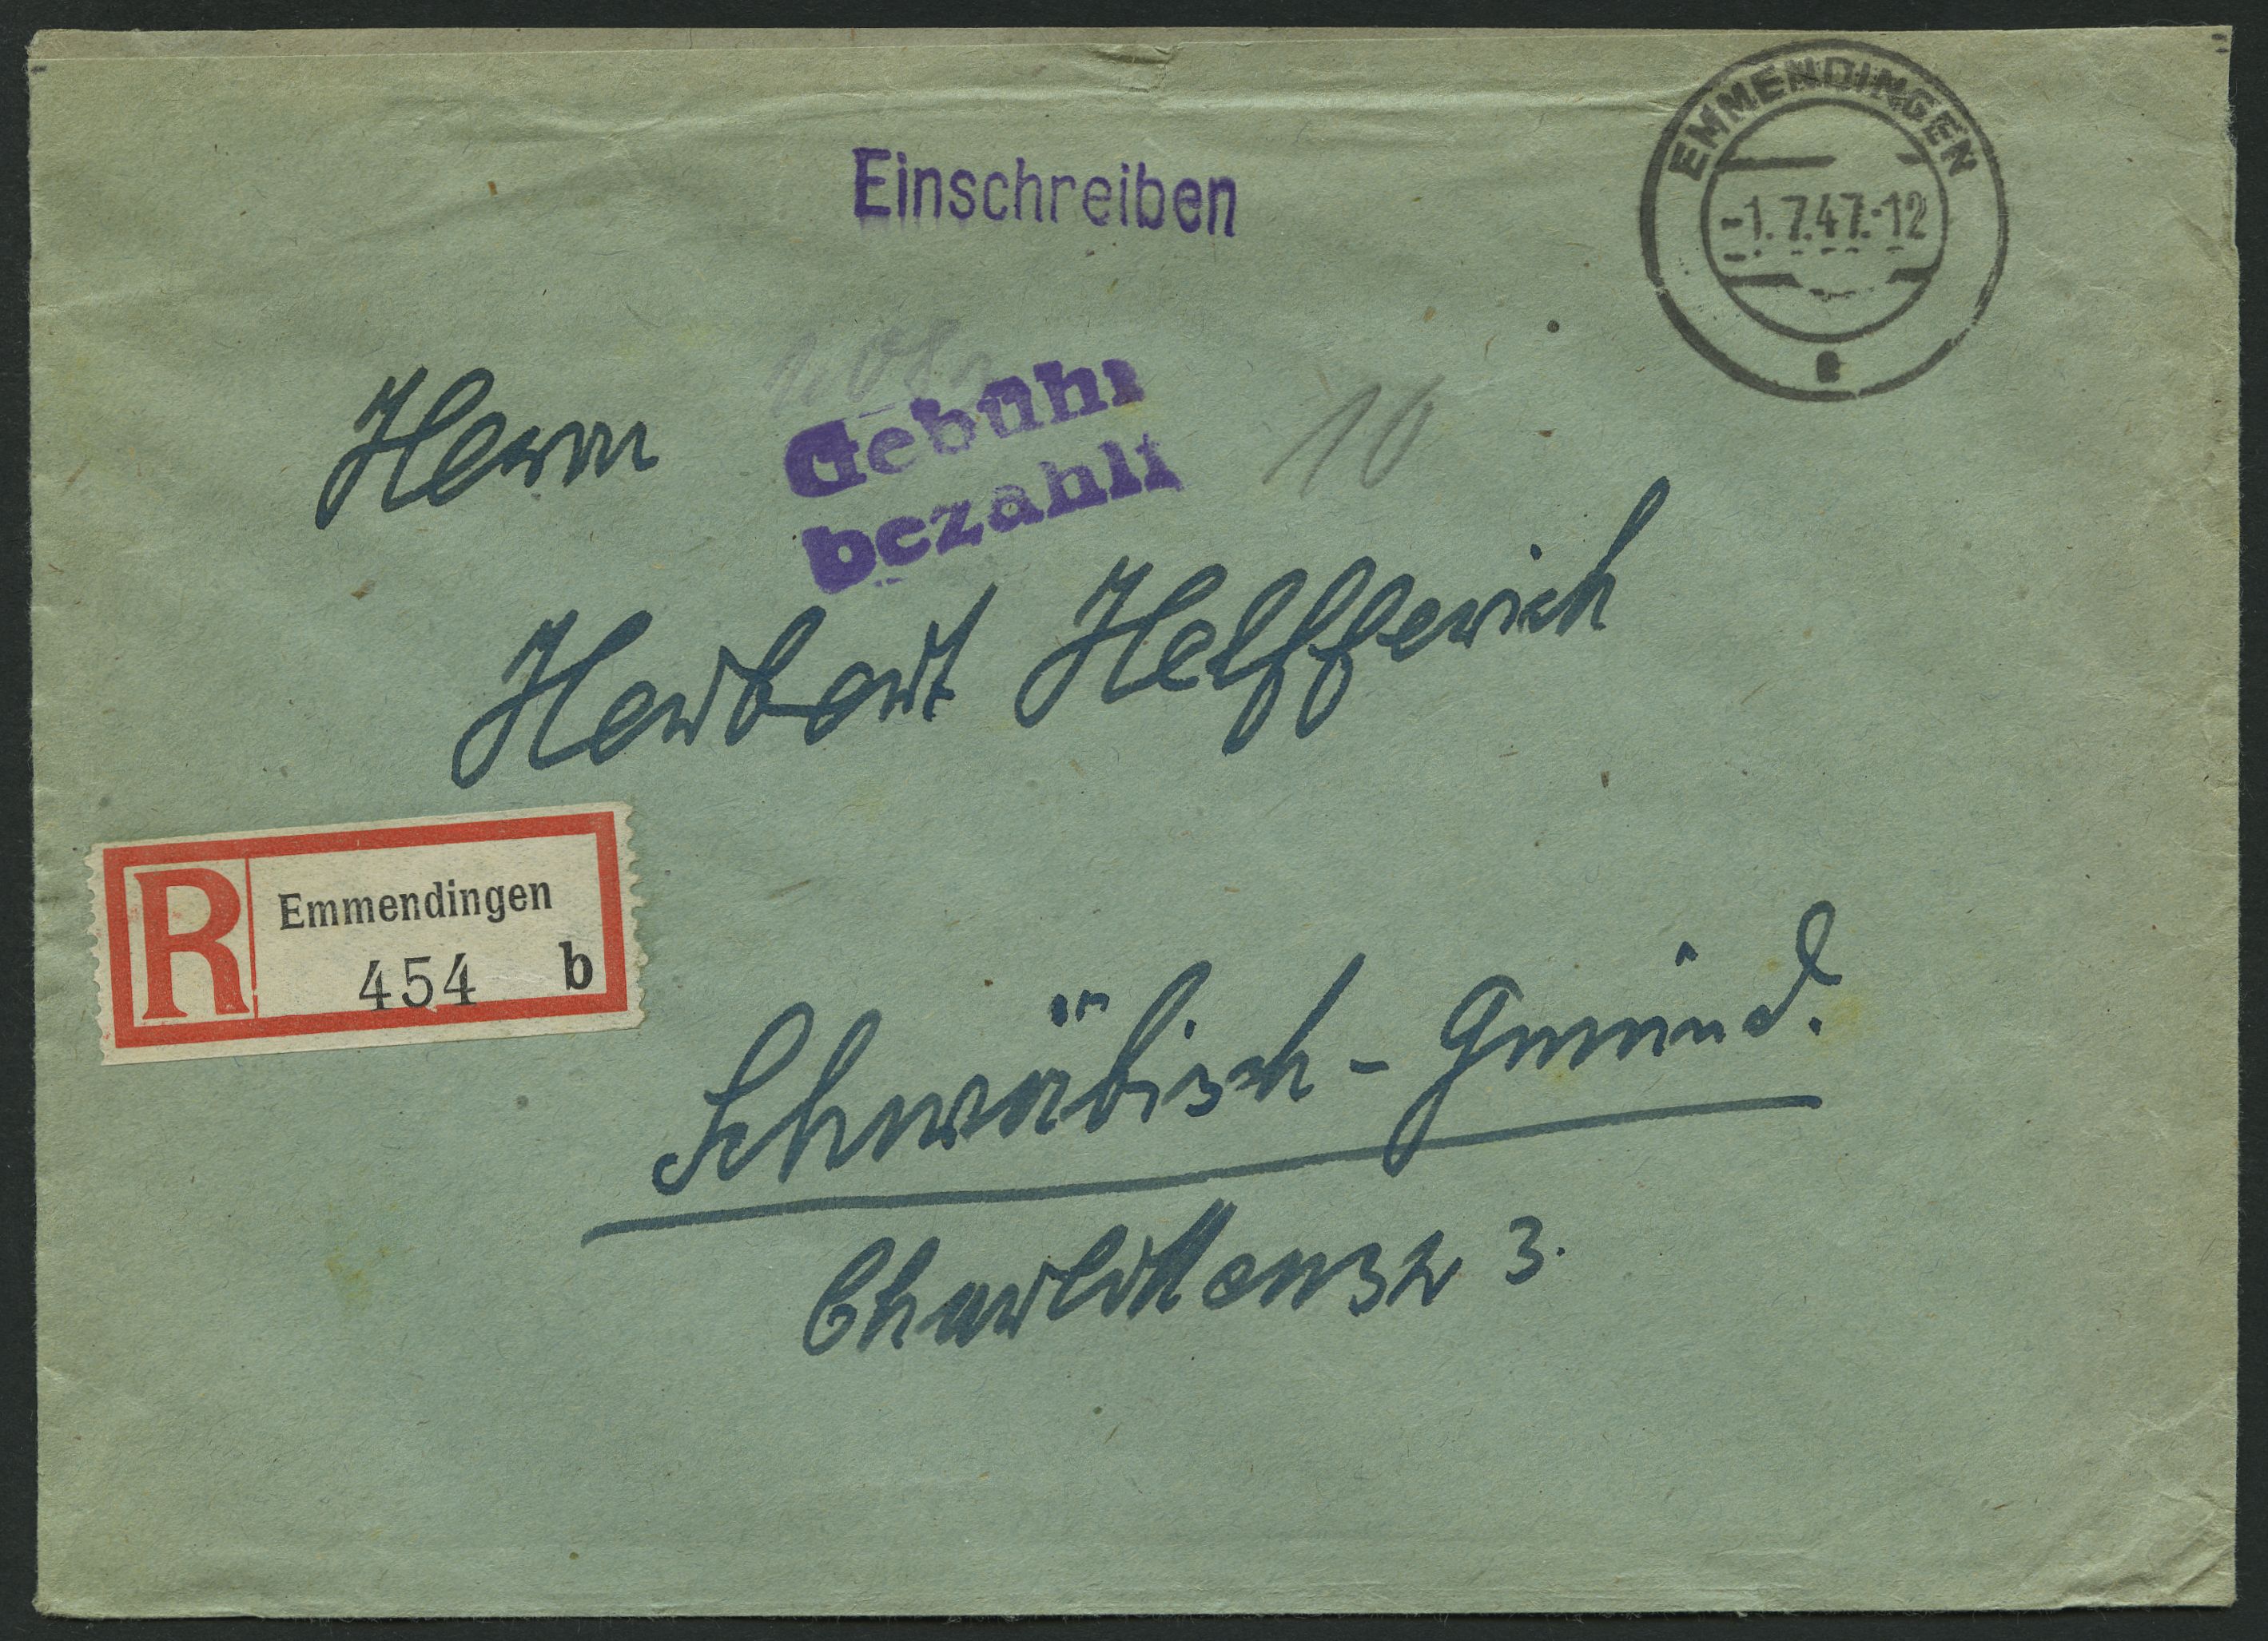 EMMENDINGEN
-1.7.47.-12
Einschreiben
Gebühr
bezahlt
10
Herrn
Herbert Helfferich
R Emmendingen
454 b
Schwäbisch-Gmünd.
Charlottenstr 3.